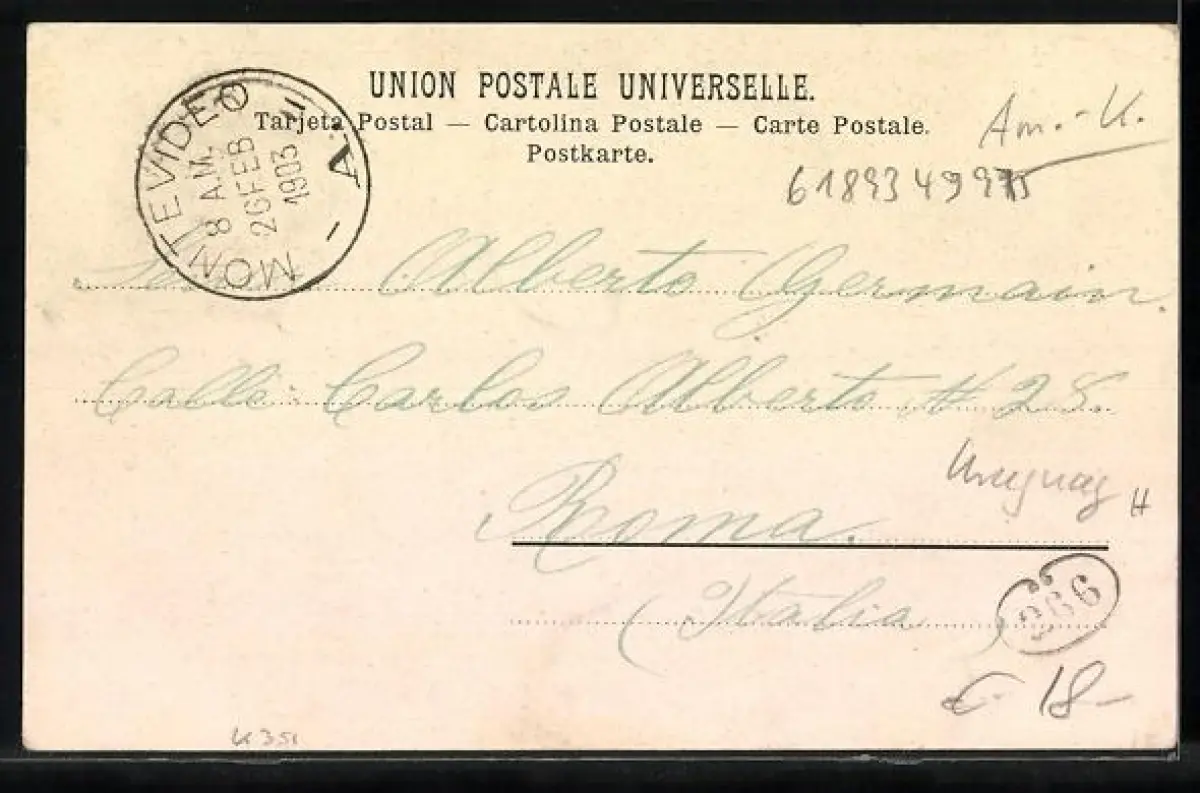 UNION POSTALE UNIVERSELLE.
Tarjeta Postal — Cartolina Postale — Carte Postale.
Postkarte.
MONTEVIDEO
8 AM.
26 FEB
1903
A.
Am.-U.
Alberto Germain.
Calle: Carlos Alberto # 28
Uruguay H
Roma.
(Italia)
266
€ 18-
U351